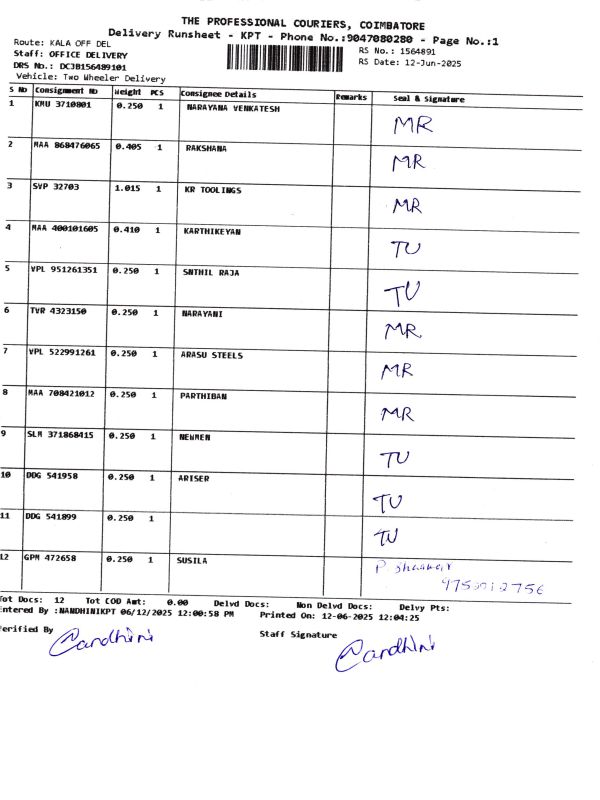 THE PROFESSIONAL COURIERS, COIMBATORE
Delivery Runsheet - KPT - Phone No.:9047080280 - Page No.:1
Route: KALA OFF DEL
RS No.: 1564891
Staff: OFFICE DELIVERY
RS Date: 12-Jun-2025
DRS No.: DCJB156489101
Vehicle: Two Wheeler Delivery
S No Consignment No Weight PCS Consignee Details Remarks Seal & Signature
1 KMU 3710801 0.250 1 NARAYANA VENKATESH MR
2 MAA 868476065 0.405 1 RAKSHANA MR
3 SVP 32703 1.015 1 KR TOOLINGS MR
4 MAA 400101605 0.410 1 KARTHIKEYAN TU
5 VPL 951261351 0.250 1 SNTHIL RAJA TU
6 TVR 4323150 0.250 1 NARAYANI MR
7 VPL 522991261 0.250 1 ARASU STEELS MR
8 MAA 708421012 0.250 1 PARTHIBAN MR
9 SLM 371868415 0.250 1 NEWMEN TU
10 DDG 541958 0.250 1 ARISER TU
11 DDG 541899 0.250 1 TU
12 GPM 472658 0.250 1 SUSILA P.
Tot Docs: 12 Tot COD Amt: 0.00 Delvd Docs: Non Delvd Docs: Delvy Pts:
Entered By :NANDHINIKPT 06/12/2025 12:00:58 PM Printed On: 12-06-2025 12:04:25
Verified By Staff Signature